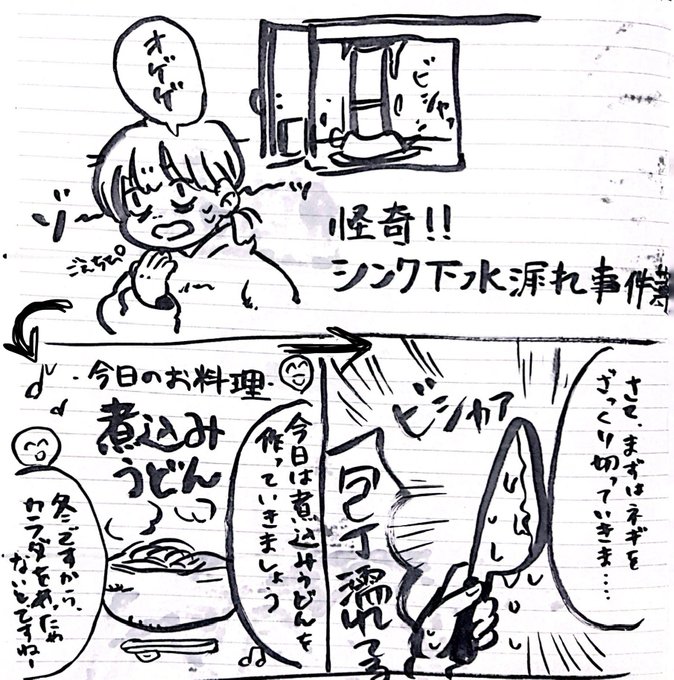 オゲゲ
ビシャァ
ゾ〜〜ッ
ごえちぴ°
怪奇!!
シンク下水漏れ事件
・今日のお料理・
煮込み
うどん
今日は煮込みうどんを
作っていきましょう
冬ですから、
カラダをあっため
ないとですねー
さて、まずはネギを
ざっくり切っていきま……
ビシャァ
包丁濡れてる